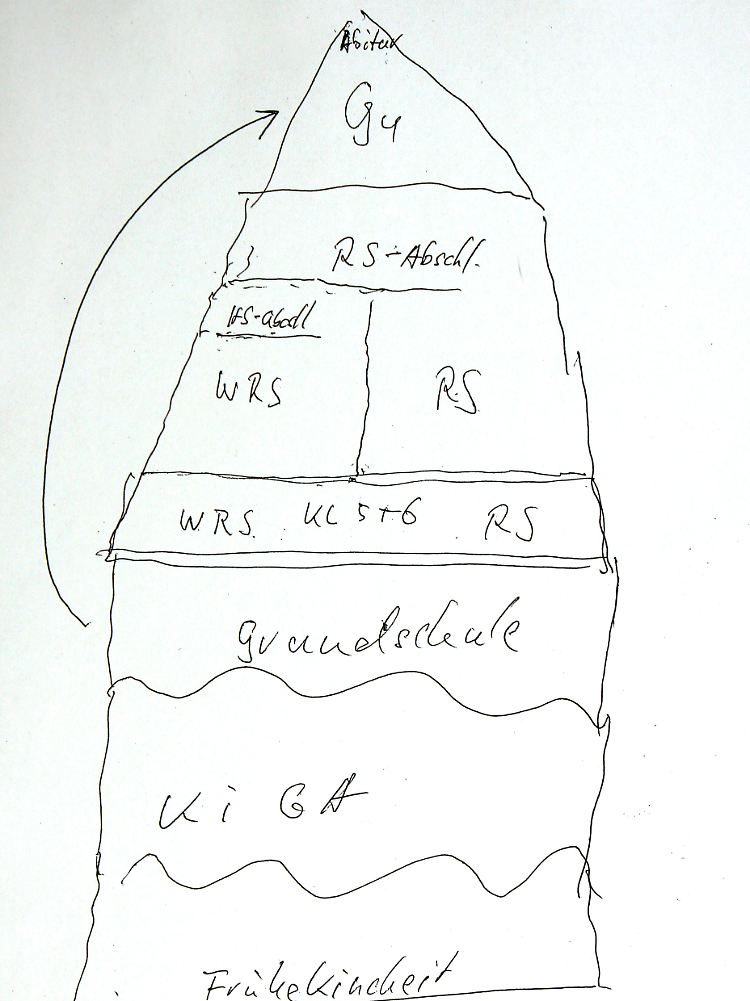 Abitur
Gy
RS-Abschl.
HS-Abschl
WRS
RS
WRS KL 5+6 RS
Grundschule
KiGA
Frühe Kindheit